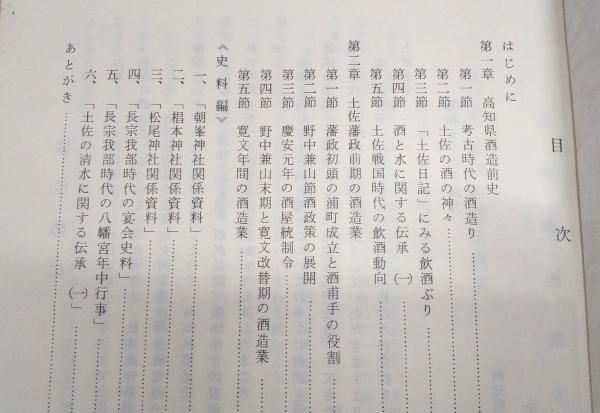 目次
はじめに
第一章 高知県酒造前史
第一節 考古時代の酒造り
第二節 土佐の酒の神々
第三節 「土佐日記」にみる飲酒ぶり
第四節 酒と水に関する伝承 (一)
第五節 土佐戦国時代の飲酒動向
第二章 土佐藩政前期の酒造業
第一節 藩政初頭の浦町成立と酒甫手の役割
第二節 野中兼山節酒政策の展開
第三節 慶安元年の酒屋統制令
第四節 野中兼山末期と寛文改替期の酒造業
第五節 寛文年間の酒造業
《史料編》
一、「朝峯神社関係資料」
二、「椙本神社関係資料」
三、「松尾神社関係資料」
四、「長宗我部時代の宴会史料」
五、「長宗我部時代の八幡宮年中行事」
六、「土佐の清水に関する伝承 (一)」
あとがき